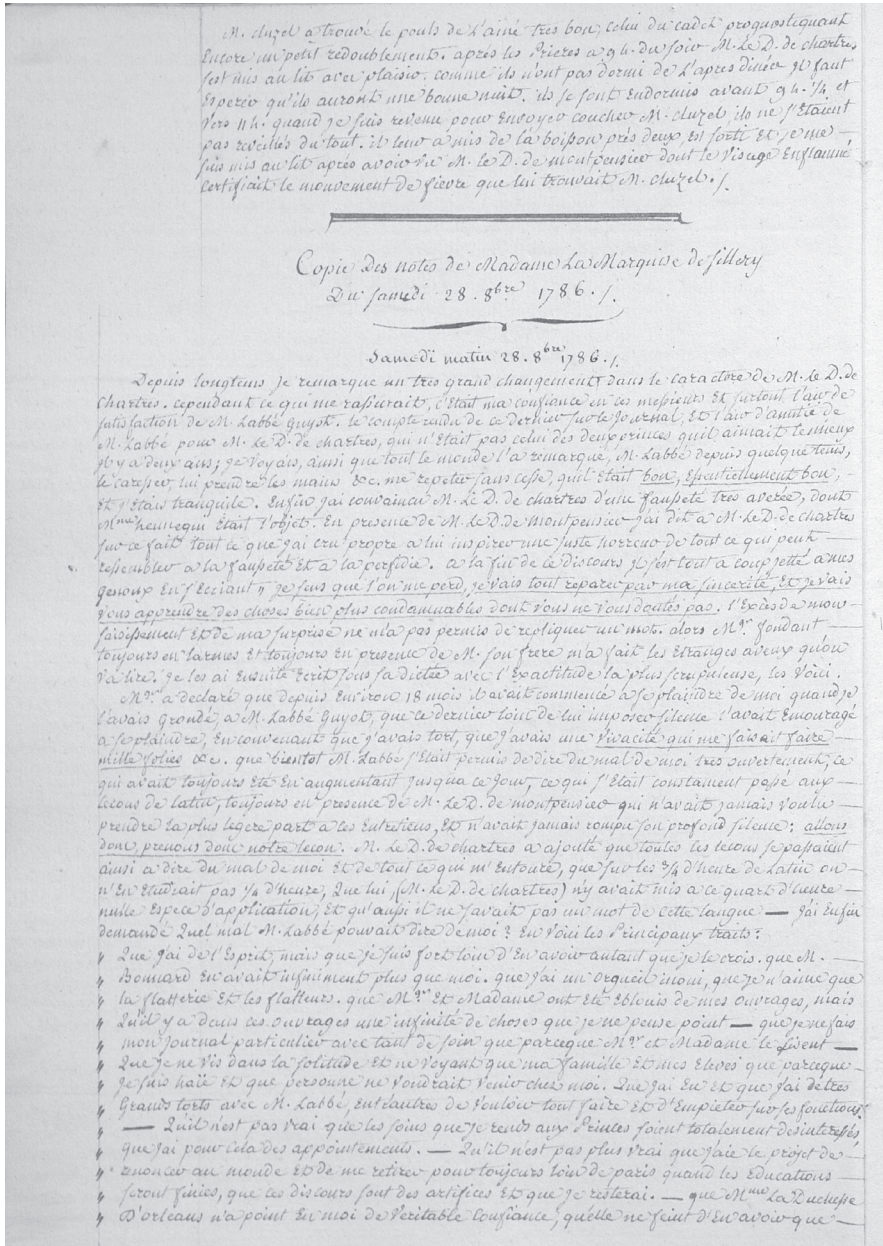 M. cluzel a trouvé le pouls de l'ainé tres bon; celui du cadet prognostiquant
Encore un petit redoublement. après les Prieres a 9 h. du soir M. Le D. de chartres
s'est mis au lit avec plaisir. comme ils n'ont pas dormi de l'apres dinée jl faut
Esperer qu'ils auront une bonne nuit. ils se sont Endormis avant 9 h. 1/4 et
Vers 11 h. quand je suis revenu pour Envoyer coucher M. cluzel, ils ne s'Etaient
pas reveillés du tout. il leur a mis de la boisson près deux, est sorti Et je me —
suis mis au lit après avoir vu M. le D. de montpensier dont le Visage Enflammé
certifiait le mouvement de fievre que lui trouvait M. cluzel./.
Copie Des notes de Madame La Marquise de Sillery
Du Samedi 28. 8bre 1786./.
Samedi matin 28. 8bre 1786./.
Depuis longtems je remarque un tres grand changement dans le caractere de M. le D. de
chartres. cependant ce qui me rassurait, c'Etait ma confiance en ces messieurs Et surtout l'air de
satisfaction de M. Labbé guyot. le compte rendu de ce dernier sur le Journal, Et l'air d'amitié de
M. Labbé pour M. Le D. de chartres, qui n'Etait pas celui des deux princes quil aimait le mieux
jl y a deux ans; je voyais, ainsi que tout le monde l'a remarqué, M. Labbé depuis quelque tems,
le caresser, lui prendre les mains &c. me repeter sans cesse, quil Etait bon, Essentiellement bon,
Et j'Etais tranquile. Enfin j'ai convaincu M. Le D. de chartres d'une fausseté tres averée, dont
Mme hennequin Etait l'objet. En presence de M. Le D. de montpensier j'ai dit a M. Le D. de chartres
sur ce fait tout ce que j'ai cru propre a lui inspirer une juste horreur de tout ce qui peut —
ressembler a la fausseté Et a la perfidie. a la fin de ce discours jl s'est tout a coup jetté a mes
genoux En s'Ecriant " je sens que l'on me perd, je vais tout reparer par ma sincerité, Et je vais
vous apprendre des choses bien plus condamnables dont vous ne vous doutés pas. l'Excès de mon —
saisissement Et de ma surprise ne m'a pas permis de repliquer un mot. alors Mgr. fondant —
toujours en larmes Et toujours en presence de M. son frere m'a fait les Etranges aveux qu'on
va lire. je les ai Ensuite Ecrit sous sa dictée avec l'Exactitude la plus scrupuleuse, les Voici.
Mgr. a declaré que depuis Environ 18 mois il avait commencé a se plaindre de moi quand je
l'avais grondé, a M. Labbé Guyot, que ce dernier loin de lui imposer silence l'avait Encouragé
a se plaindre, En convenant que j'avais tort, que j'avais une Vivacité qui me faisait faire
mille folies &c. que bientot M. Labbé s'Etait permis de dire du mal de moi tres ouvertement, ce
qui avait toujours Eté En augmentant jusqua ce Jour, ce qui s'Etait constament passé aux —
lecons de latin, toujours en presence de M. Le D. de montpensier qui n'avait jamais voulu —
prendre la plus legere part a ces Entretiens, Et n'avait jamais rompu son profond silence: allons
donc, prenons donc notre lecon. M. Le D. de chartres a ajouté que toutes les lecons se passaient
ainsi a dire du mal de moi Et de tout ce qui m'Entoure, que sur les 3/4 d'heure de Latin on —
n'En Etudiait pas 1/4 d'heure, Que lui, (M. Le D. de chartres) n'y avait mis a ce quart d'heure —
nulle Espece d'application, Et qu'aussi il ne savait pas un mot de cette langue — J'ai Enfin
demandé Quel mal M. Labbé pouvait dire de moi? En voici les Principaux traits:
" Que j'ai de l'Esprit, mais que je suis fort loin d'En avoir autant que je le crois. que M. —
" Bonnard En avait infiniment plus que moi. que j'ai un orgueil inoui, que je n'aime que
" la flatterie Et les flatteurs. que Mgr. Et Madame ont Eté Eblouis de mes ouvrages, mais
" Qu'il y a dans ces ouvrages une infinité de choses que je ne pense point — que je ne fais
" mon journal particulier avec tant de soin que parceque Mgr et Madame le lisent —
" Que je ne vis dans la solitude Et ne voyant que ma famille Et mes Eleves que parceque
" je suis haïe Et que personne ne voudrait venir chez moi. Que j'ai Eu Et que j'ai de tres
" Grands torts avec M. Labbé, Entr'autres de vouloir tout faire Et d'Empieter sur ses fonctions.
" — Qu'il n'est pas vrai que les soins que je rends aux Princes soient totalement desinteressés,
" que j'ai pour cela des appointements. — Qu'il n'est pas plus vrai que j'aie le projet de —
" renoncer au monde Et de me retirer pour toujours loin de paris quand les Educations —
" seront finies, que ces discours sont des artifices Et que je resterai. — que Mme La Duchesse
" D'orleans n'a point En moi de Veritable Confiance, qu'elle ne feint d'En avoir que —